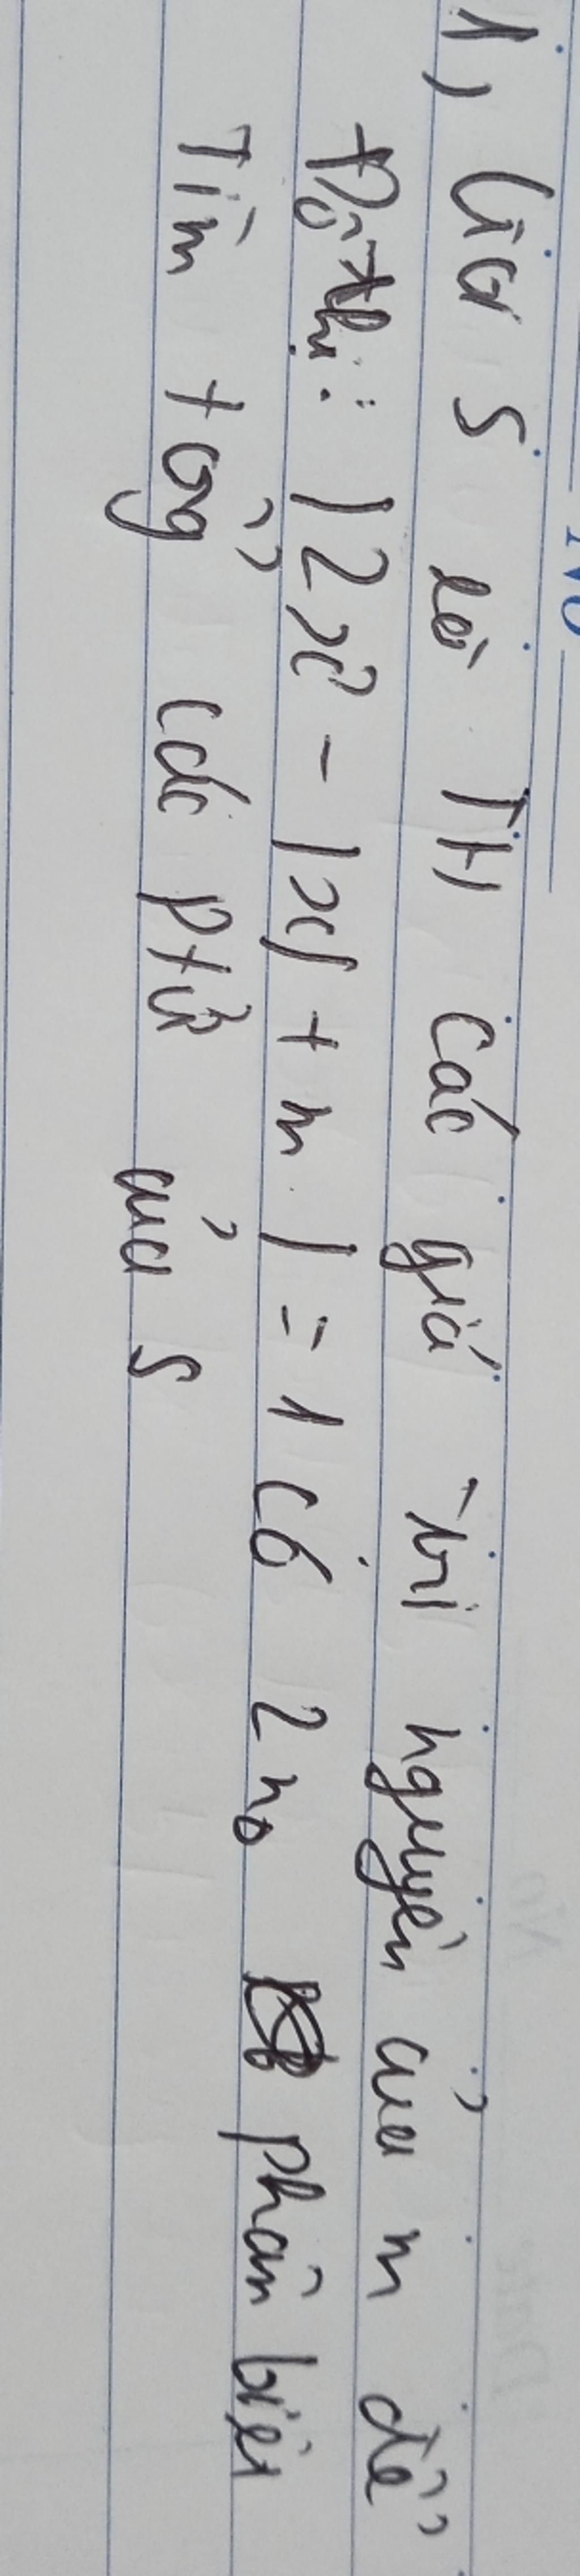 1, Gọi S là TH các giá trị nguyên của m để
Đồ thị: |2x - |x| + m| = 1 có 2 no phân biệt
Tìm tổng các ptử của S